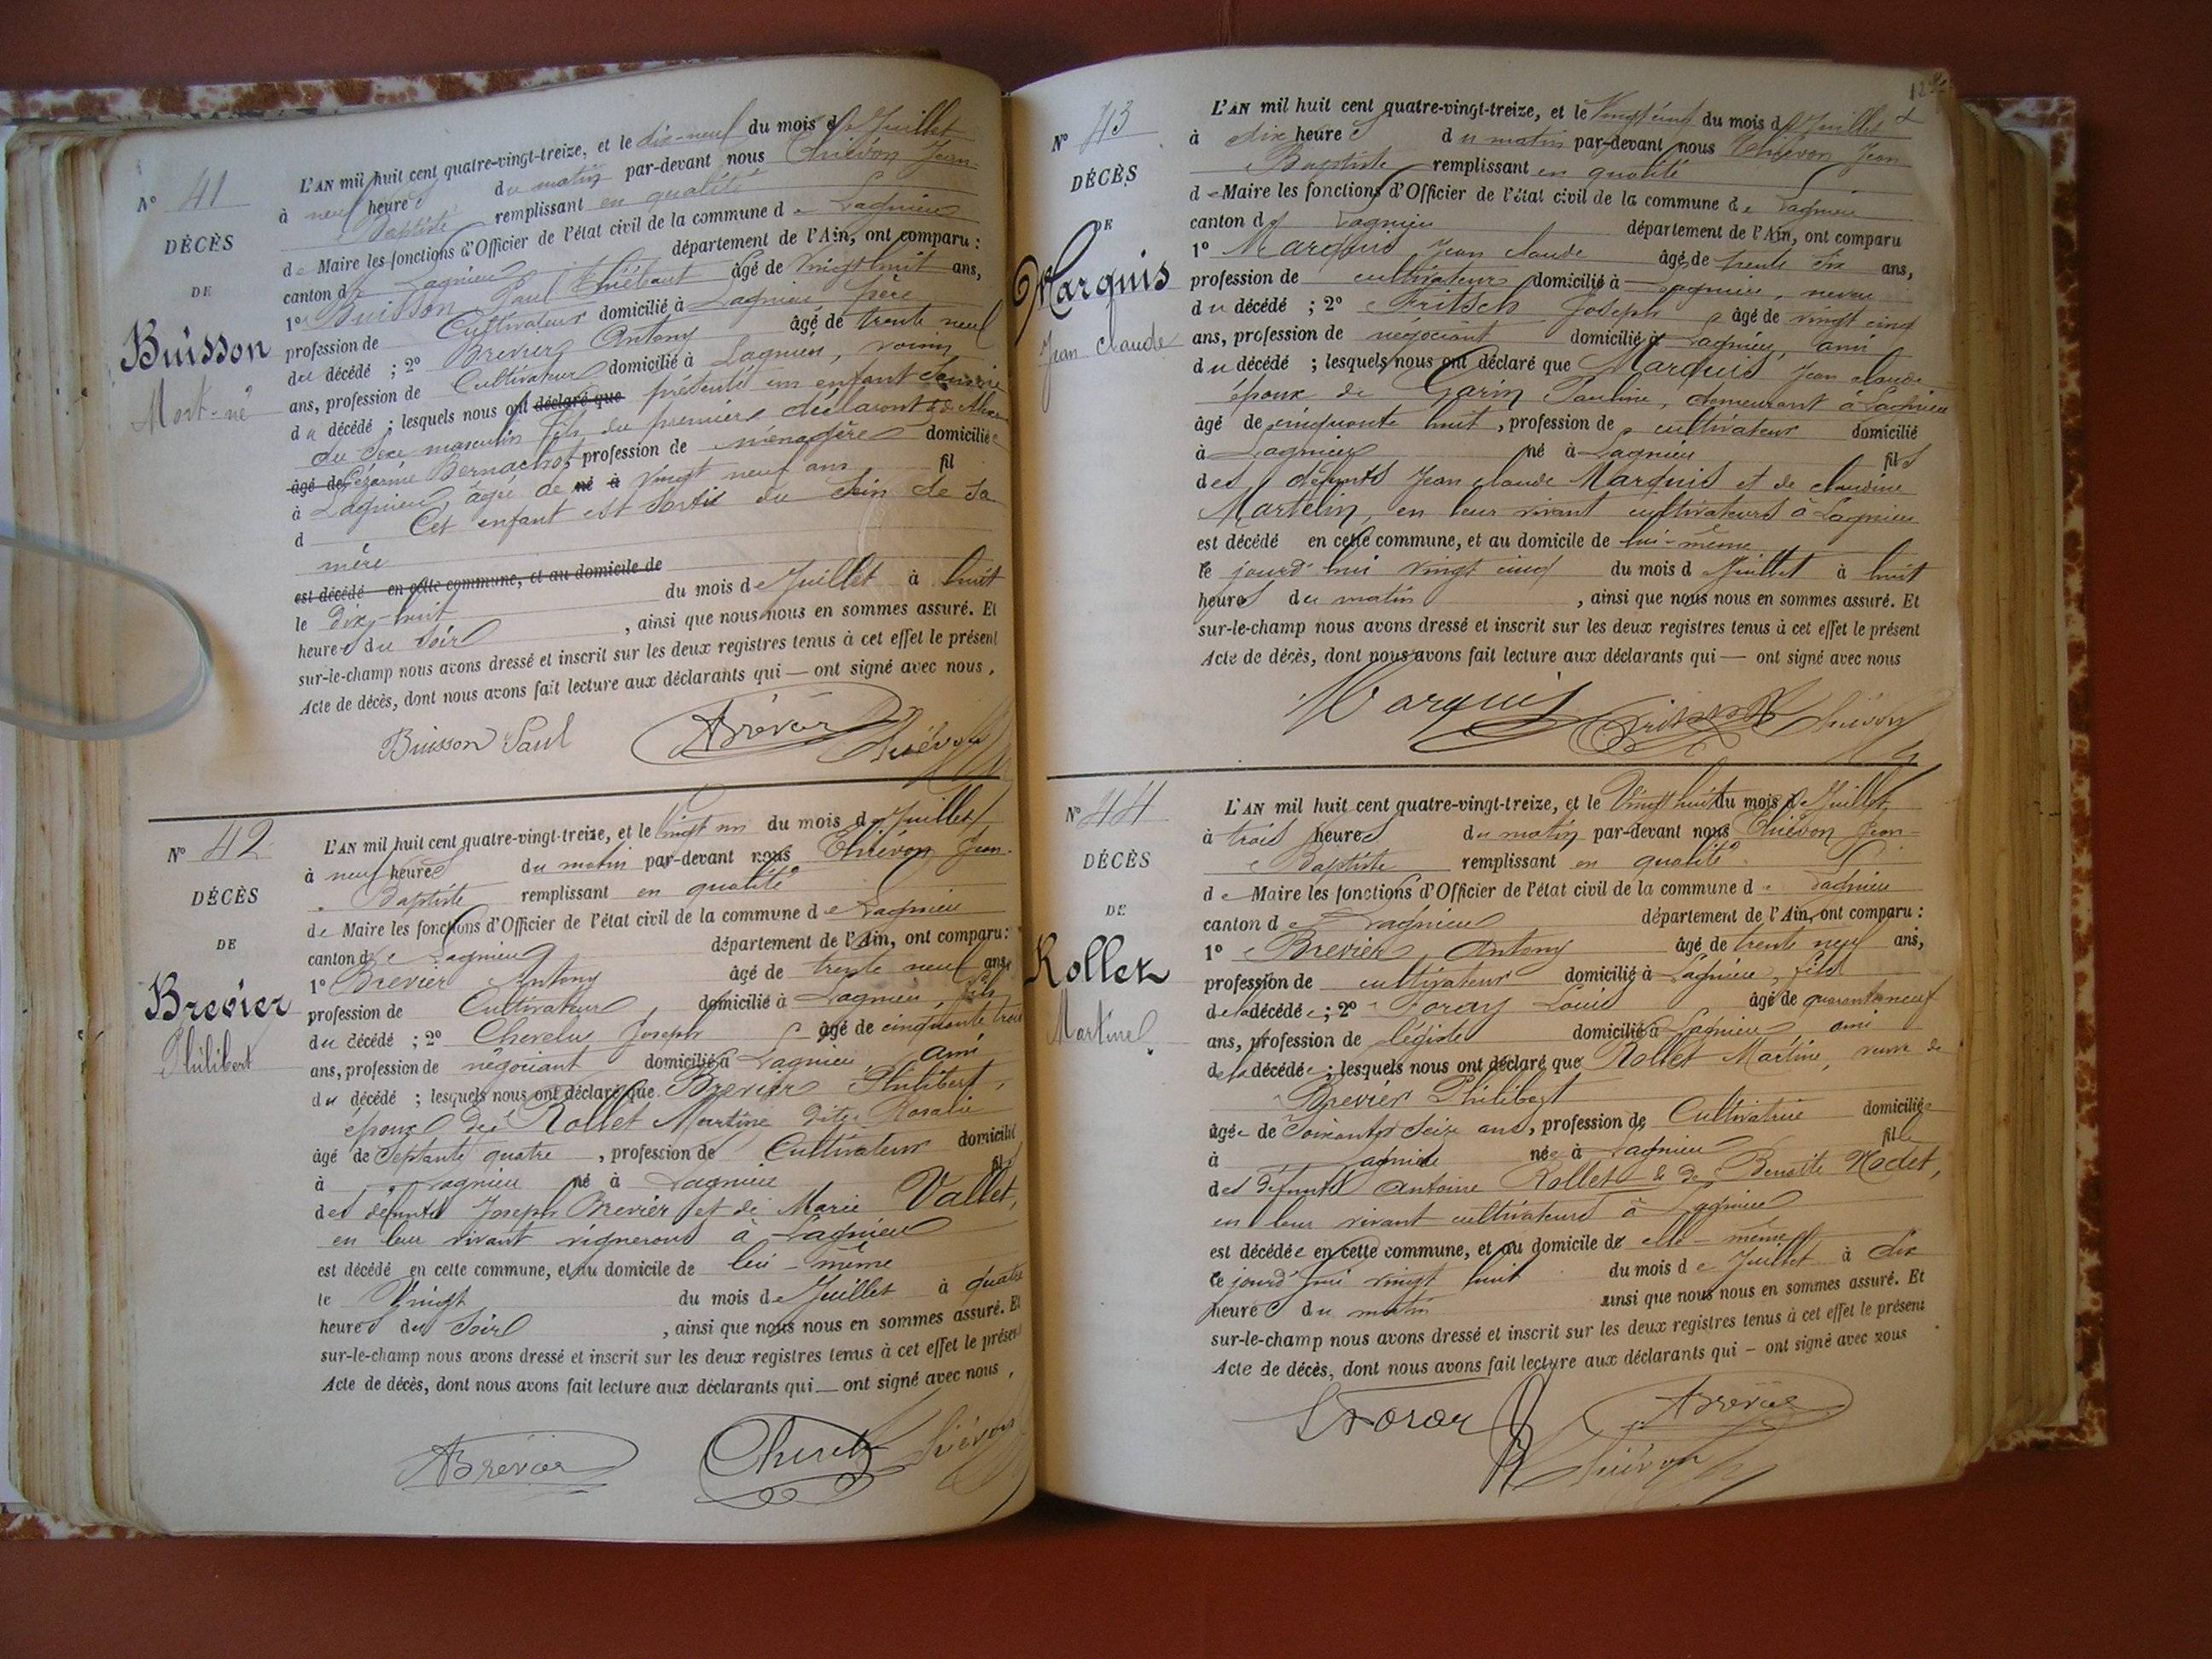 N° 41
DÉCÈS
DE
Buisson
Mort-né
L'AN mil huit cent quatre-vingt-treize, et le dix-neuf du mois de Juillet
à neuf heures du matin par-devant nous Thiévon Jean-
Baptiste remplissant en qualité
de Maire les fonctions d'Officier de l'état civil de la commune de Lagnieu
canton de Lagnieu département de l'Ain, ont comparu :
1° Buisson Paul Thiébaut âgé de vingt huit ans,
profession de Cultivateur domicilié à Lagnieu, père
du décédé ; 2° Brevier Antony âgé de trente neuf
ans, profession de Cultivateur domicilié à Lagnieu, voisin
du décédé ; lesquels nous ont déclaré que présenté un enfant
du sexe masculin fils du premier déclarant & de
âgé de Bernachot profession de ménagère domiciliée
à Lagnieu, âgée de né à vingt neuf ans fil
d Cet enfant est sorti du sein de sa
mère
est décédé en cette commune, et au domicile de
le dix-huit du mois de Juillet à huit
heures du soir , ainsi que nous nous en sommes assuré. Et
sur-le-champ nous avons dressé et inscrit sur les deux registres tenus à cet effet le présent
Acte de décès, dont nous avons fait lecture aux déclarants qui — ont signé avec nous.
Buisson Paul ABrévier Thiévon
N° 42
DÉCÈS
DE
Brevier
Philibert
L'AN mil huit cent quatre-vingt-treize, et le vingt un du mois de Juillet
à neuf heures du matin par-devant nous Thiévon Jean-
Baptiste remplissant en qualité
de Maire les fonctions d'Officier de l'état civil de la commune de Lagnieu
canton de Lagnieu département de l'Ain, ont comparu :
1° Brevier Antony âgé de trente neuf ans
profession de Cultivateur domicilié à Lagnieu, fils
du décédé ; 2° Chevelu Joseph âgé de cinquante trois
ans, profession de négociant domicilié à Lagnieu ami
du décédé ; lesquels nous ont déclaré que Brevier Philibert,
époux de Rollet Martine dite Rosalie
âgé de Septante quatre , profession de Cultivateur domicilié
à Lagnieu né à Lagnieu fils
des défunts Joseph Brevier et de Marie Vallet,
en leur vivant vignerons à Lagnieu
est décédé en cette commune, et au domicile de lui-même
le Vingt du mois de Juillet à quatre
heures du soir , ainsi que nous nous en sommes assuré. Et
sur-le-champ nous avons dressé et inscrit sur les deux registres tenus à cet effet le présent
Acte de décès, dont nous avons fait lecture aux déclarants qui — ont signé avec nous.
ABrévier Thiévon
N° 43
DÉCÈS
DE
Marquis
Jean Claude
L'AN mil huit cent quatre-vingt-treize, et le Vingt cinq du mois de Juillet
à dix heures du matin par-devant nous Thiévon Jean
Baptiste remplissant en qualité
de Maire les fonctions d'Officier de l'état civil de la commune de Lagnieu
canton de Lagnieu département de l'Ain, ont comparu
1° Marquis Jean Claude âgé de trente six ans,
profession de cultivateur domicilié à Lagnieu, neveu
du décédé ; 2° Fritsch Joseph âgé de vingt cinq
ans, profession de négociant domicilié à Lagnieu, ami
du décédé ; lesquels nous ont déclaré que Marquis, Jean Claude
époux de Garin Pauline, demeurant à Lagnieu
âgé de cinquante huit , profession de cultivateur domicilié
à Lagnieu né à Lagnieu fils
des défunts Jean Claude Marquis et de Claudine
Martelin, en leur vivant cultivateurs à Lagnieu
est décédé en cette commune, et au domicile de lui-même
le jourd'hui vingt cinq du mois de Juillet à huit
heures du matin , ainsi que nous nous en sommes assuré. Et
sur-le-champ nous avons dressé et inscrit sur les deux registres tenus à cet effet le présent
Acte de décès, dont nous avons fait lecture aux déclarants qui — ont signé avec nous
Marquis Thiévon
N° 44
DÉCÈS
DE
Rollet
Martine
L'AN mil huit cent quatre-vingt-treize, et le Vingt huit du mois de Juillet
à trois heures du matin par-devant nous Thiévon Jean-
Baptiste remplissant en qualité
de Maire les fonctions d'Officier de l'état civil de la commune de Lagnieu
canton de Lagnieu département de l'Ain, ont comparu :
1° Brevier Antony âgé de trente neuf ans,
profession de cultivateur domicilié à Lagnieu, fils
de la décédée ; 2° Foray Louis âgé de quarante neuf
ans, profession de légiste domicilié à Lagnieu ami
de la décédée ; lesquels nous ont déclaré que Rollet Martine, veuve de
Brevier Philibert
âgée de soixante seize ans, profession de Cultivatrice domiciliée
à Lagnieu née à Lagnieu fille
des défunts Antoine Rollet & de Benoite Nodet,
en leur vivant cultivateurs à Lagnieu
est décédée en cette commune, et au domicile de elle-même
le jourd'hui vingt huit du mois de Juillet à dix
heures du matin ainsi que nous nous en sommes assuré. Et
sur-le-champ nous avons dressé et inscrit sur les deux registres tenus à cet effet le présent
Acte de décès, dont nous avons fait lecture aux déclarants qui — ont signé avec nous
LForay ABrévier
Thiévon